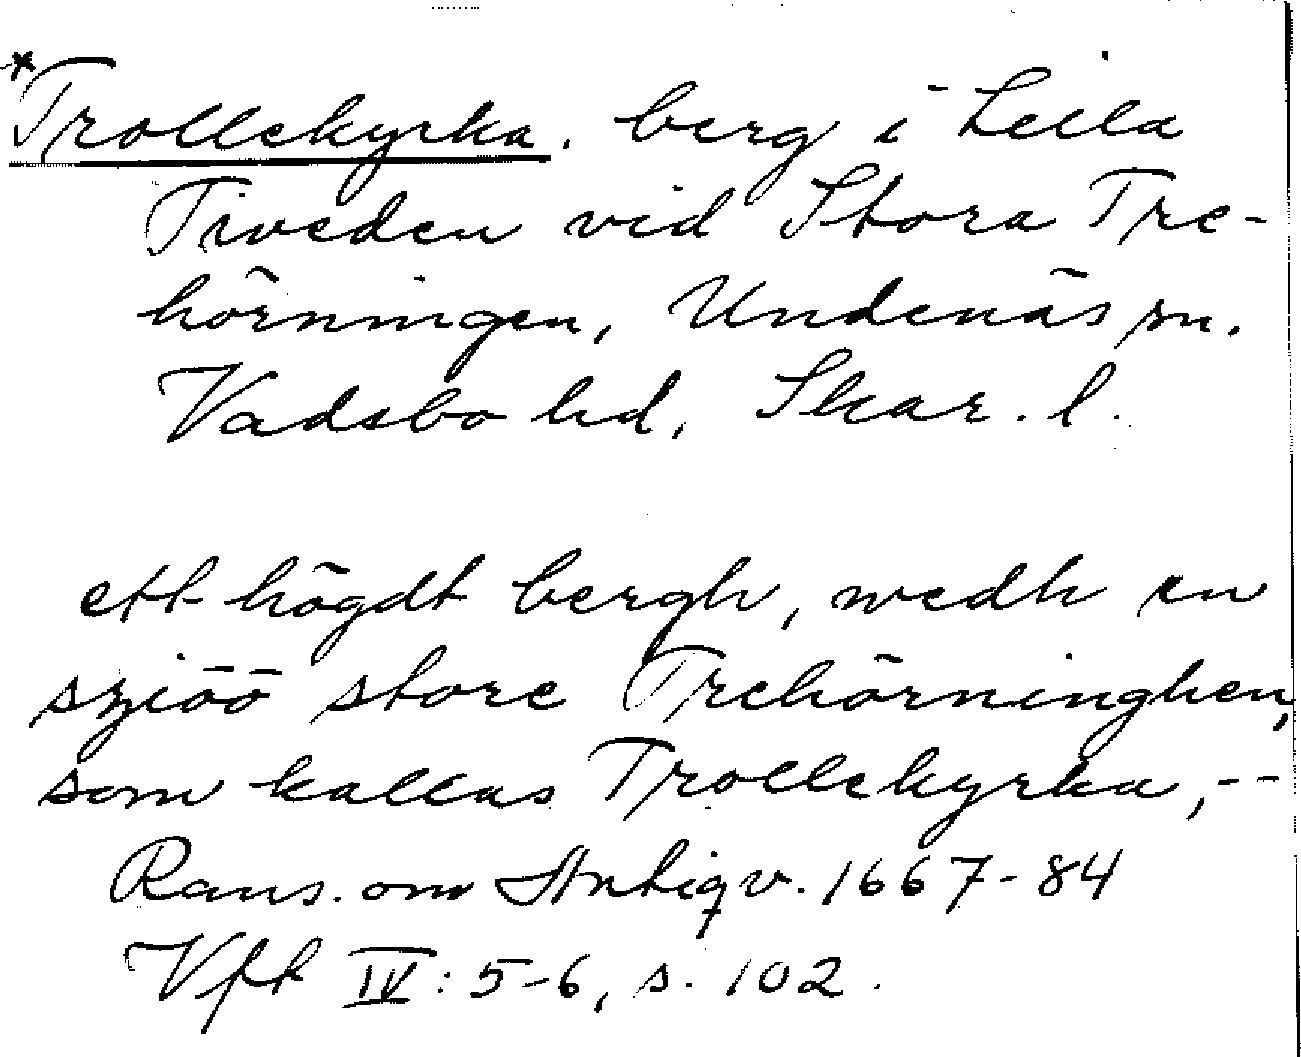 *Trollekyrka. berg i Lilla
Tiveden vid Stora Tre-
hörningen, Undenäs sn.
Vadsbo hd, Skar. l.
ett högdt bergh, wedh en
sziöö store Trehörninghen,
som kallas Trollekyrka, --
Rans. om Antiqv. 1667-84
Vft IV: 5-6, s. 102.